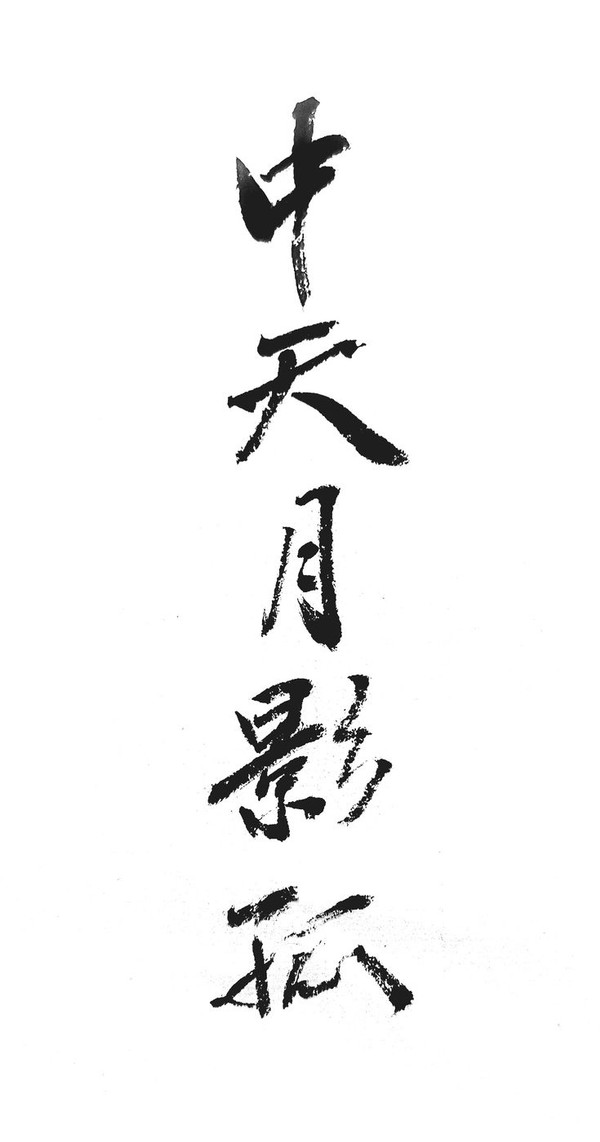 中天月影孤